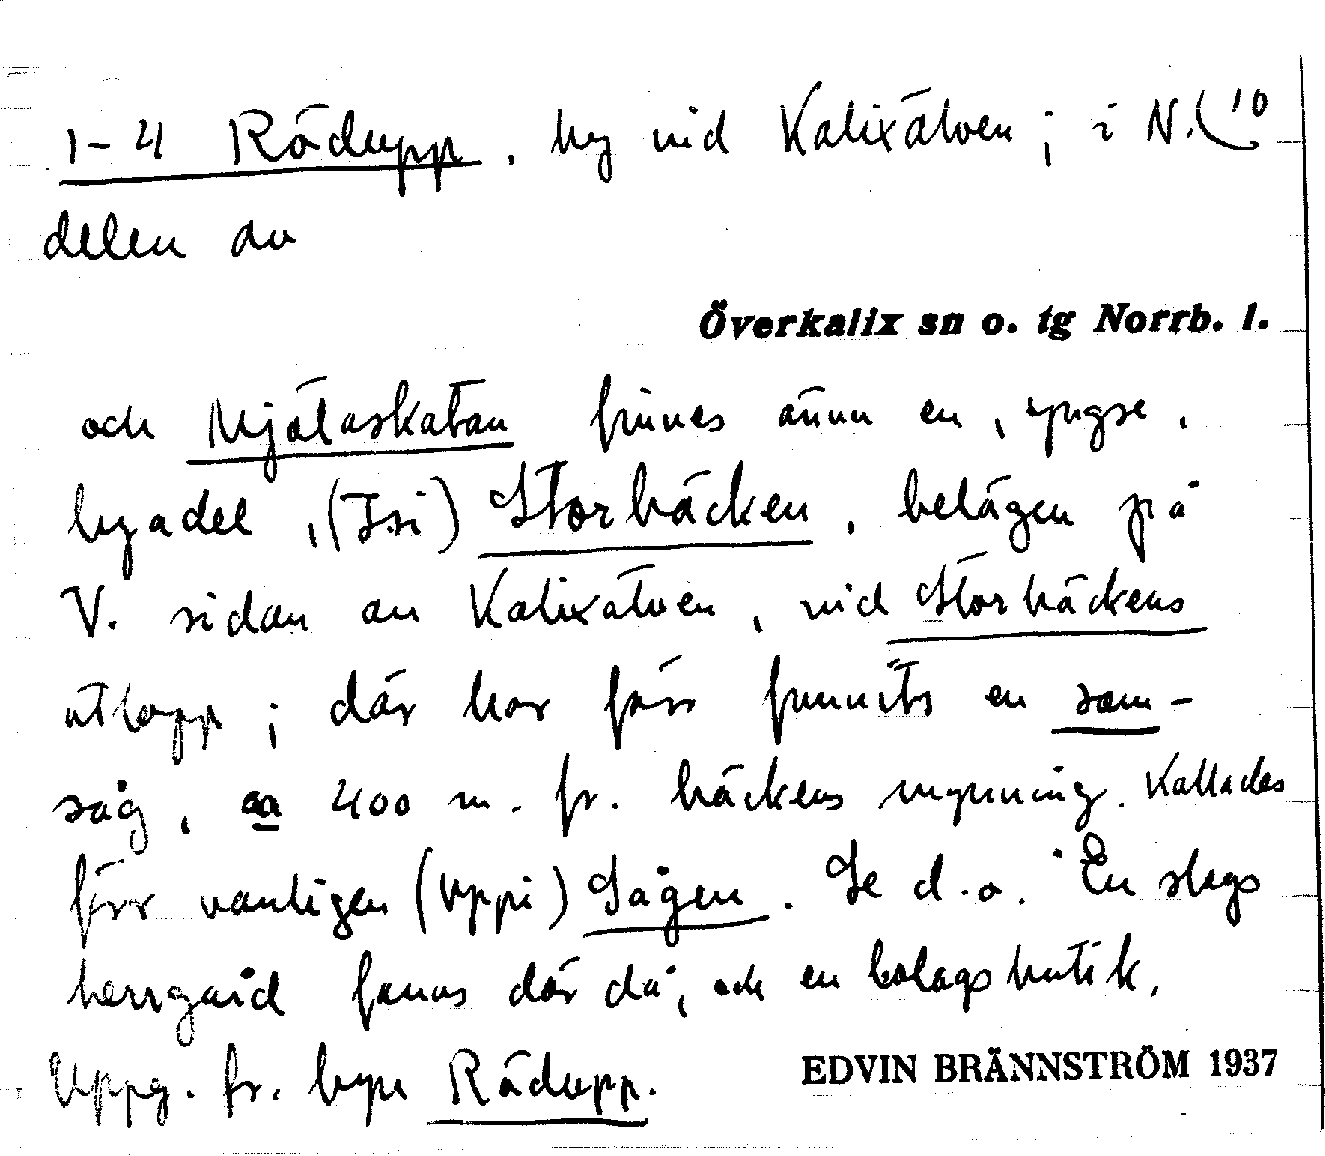 1-4 Rödupp, by vid Kalixälven; i N. (10
delen av
Överkalix sn o. tg Norrb. l.
och Mjölaskatan finnes ännu en, yngse,
byadel, (Isi) Storbäcken, belägen på
V. sidan av Kalixälven, vid Storbäckens
utlopp; där har förr funnits en som-
såg, ca 400 m. fr. bäckens mynning. Kallades
förr vanligen (Uppi) Sågen. Se d.o. En slags
herrgård fanns där då, och en bolagsbutik.
Uppg. fr. byn Rödupp.
EDVIN BRÄNNSTRÖM 1937